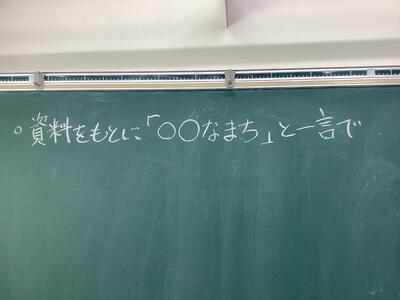 ○資料をもとに「○○なまち」と一言で